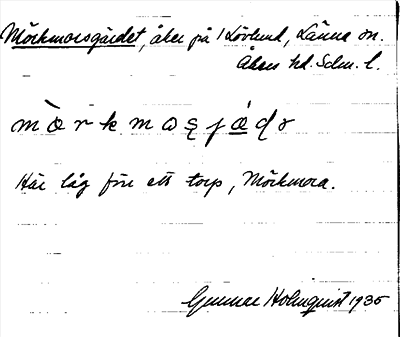 Mörkmorsgärdet, åker på 1 Lövlund, Länna sn.
Åkers hd. Sdm. l.
mörkmosjädr
Här låg förr ett torp, Mörkmora.
Gunnar Holmquist 1935